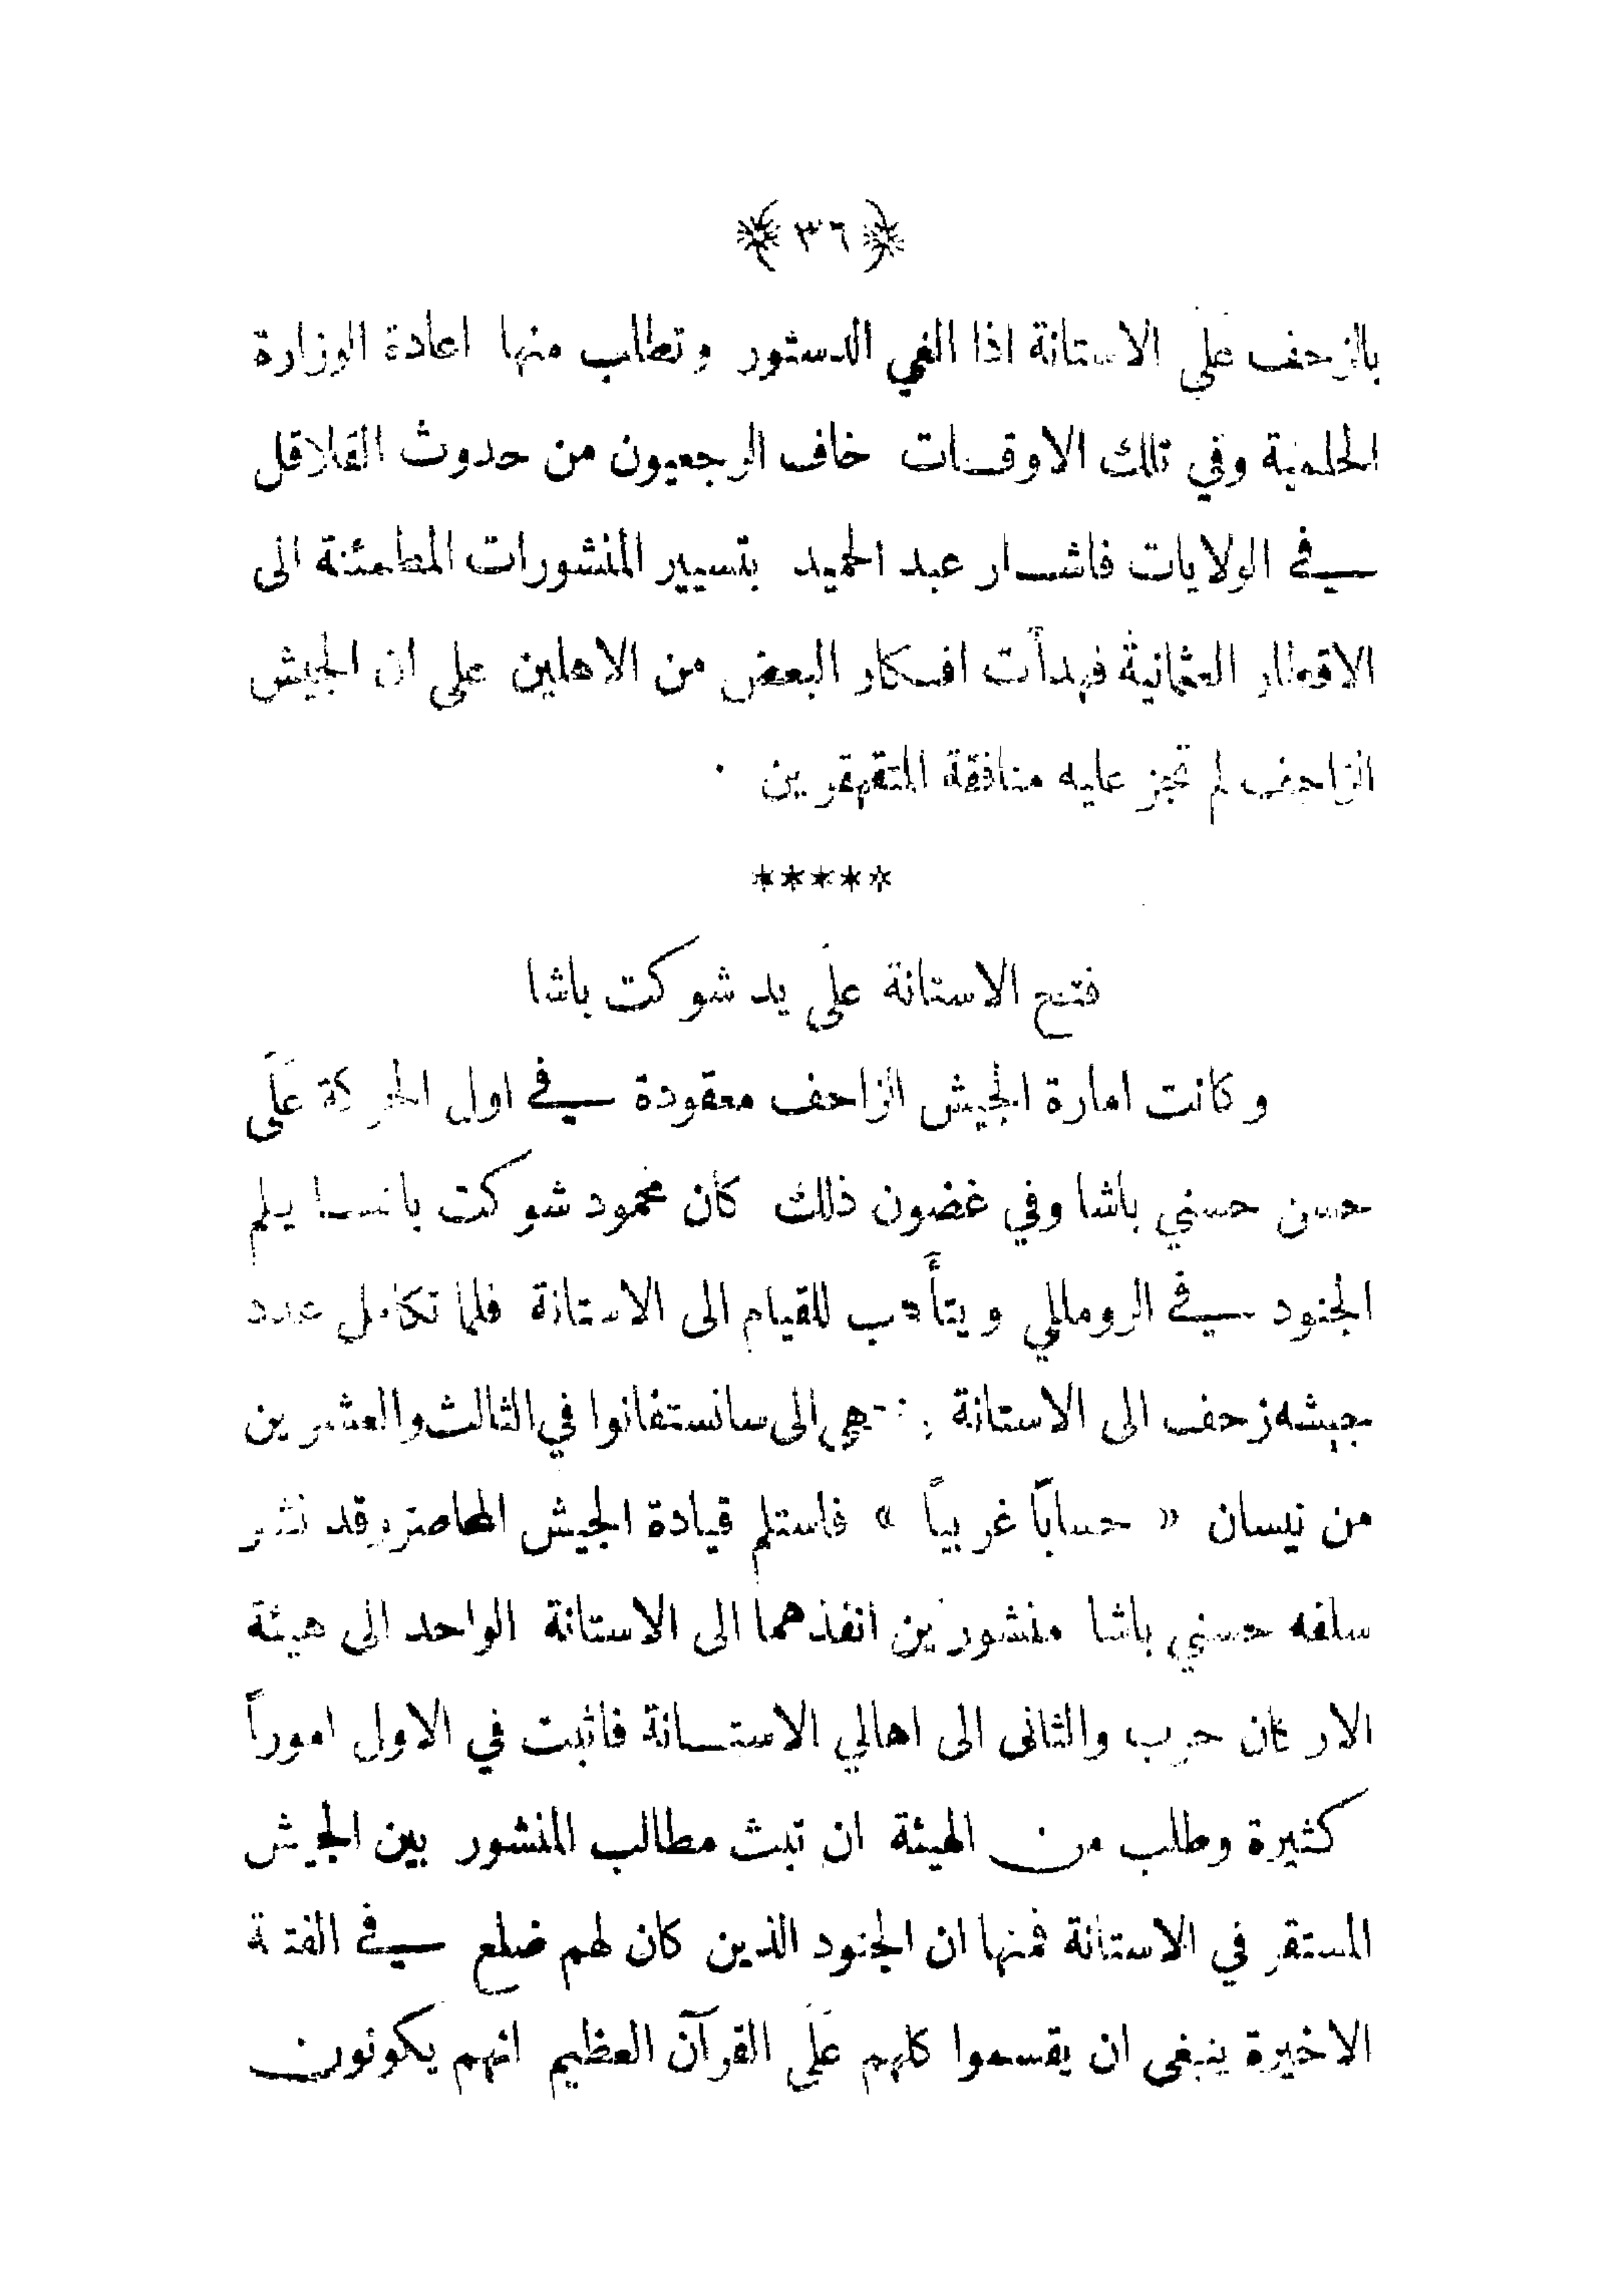 ﴿ ٣٦ ﴾
بالزحف علَى الاستانة اذا الغي الدستور وتطلب منها اعادة الوزارة
الحلمية وفي تلك الاوقات خاف الرجعيون من حدوث القلاقل
في الولايات فاشار عبد الحميد بتسيير المنشورات المطمئنة الى
الاقطار العثمانية فهدأت افكار البعض من الاهلين على ان الجيش
الزاحف لم تجز عليه منافقة المتقهقرين ٠
*****
فتح الاستانة علَى يد شوكت باشا
وكانت امارة الجيش الزاحف معقودة في اول الحركة علَى
حسن حسني باشا وفي غضون ذلك كان محمود شوكت باشا يلم
الجنود في الروملي ويتأهب للقيام الى الاستانة فلما تكامل عدد
جيشه زحف الى الاستانة الى سانستفانوا في الثالث والعشرين
من نيسان « حسابًا غربياً » فاستلم قيادة الجيش المحاصر وقد نشر
سلفه حسني باشا منشورين انفذهما الى الاستانة الواحد الى هيئة
الاركان حرب والثانى الى اهالي الاستانة فاثبت في الاول اموراً
كثيرة وطلب من الهيئة ان تبث مطالب المنشور بين الجيش
المستقر في الاستانة فمنها ان الجنود الذين كان لهم ضلع في الفتنة
الاخيرة ينبغى ان يقسموا كلهم علَى القرآن العظيم انهم يكونون